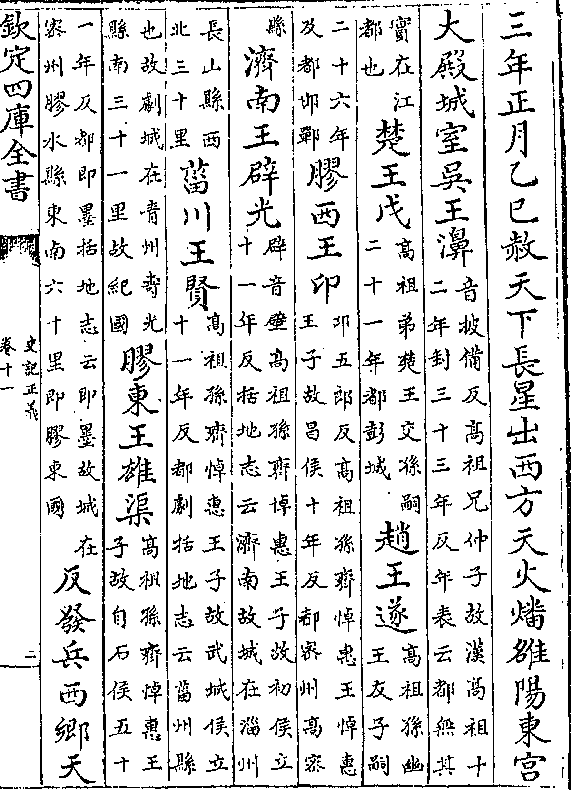 三年正月乙巳赦天下長星出西方天火燔雒陽東宫
大殿城室吳王濞音披備反髙祖兄仲子故漢髙祖十二年封三十三年反年表云都無其
實在江都也楚王戊髙祖弟楚王交孫嗣二十一年都彭城趙王遂髙祖孫幽王友子嗣
二十六年及都邯鄲膠西王印卭五郎反髙祖孫齊悼惠王悼惠王子故昌侯十年反都宻州髙宻
縣濟南王辟光辟音壁髙祖孫齊悼惠王子故初侯立十一年反括地志云濟南故城在淄州
長山縣西北三十里菑川王賢髙祖孫齊悼惠王子故武城侯立十一年反都劇括地志云菑州縣
也故劇城在青州夀光縣南三十一里故紀國膠東王雄渠髙祖孫齊悼惠王子故自石侯五十
一年反都即墨括地志云即墨故城在宻州膠水縣東南六十里即膠東國反發兵西鄉天
欽定四庫全書
史記正義
卷十一
二